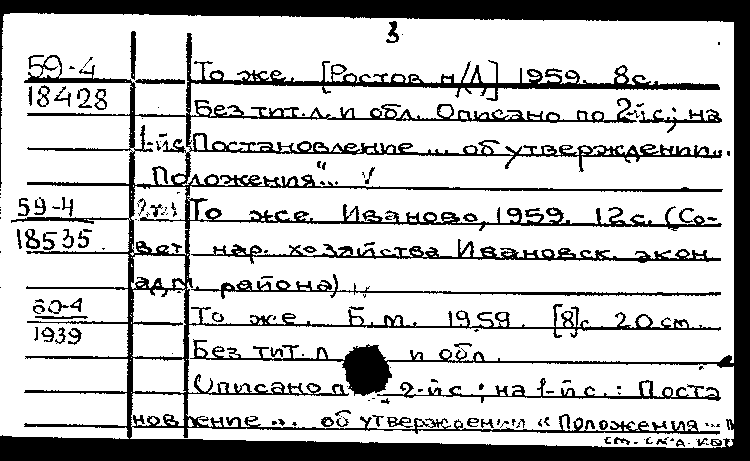 3
59-4 То же. [Ростов н/Д,] 1959. 8с.
18428 Без тит.л. и обл. Описано по 2-й с.; на
1-й с. Постановление ... об утверждении...
„Положения“...
59-4 То же. Иваново, 1959. 12с. (Со-
18535 вет нар. хозяйства Ивановск. экон
адм. района)
60-4 То же. Б.м. 1959. [8]с 20 см.
1939
Без тит. л и обл.
Описано п 2-й с.; на 1-й с.: Поста
новление ... об утверждении «Положения..."
см. сл.